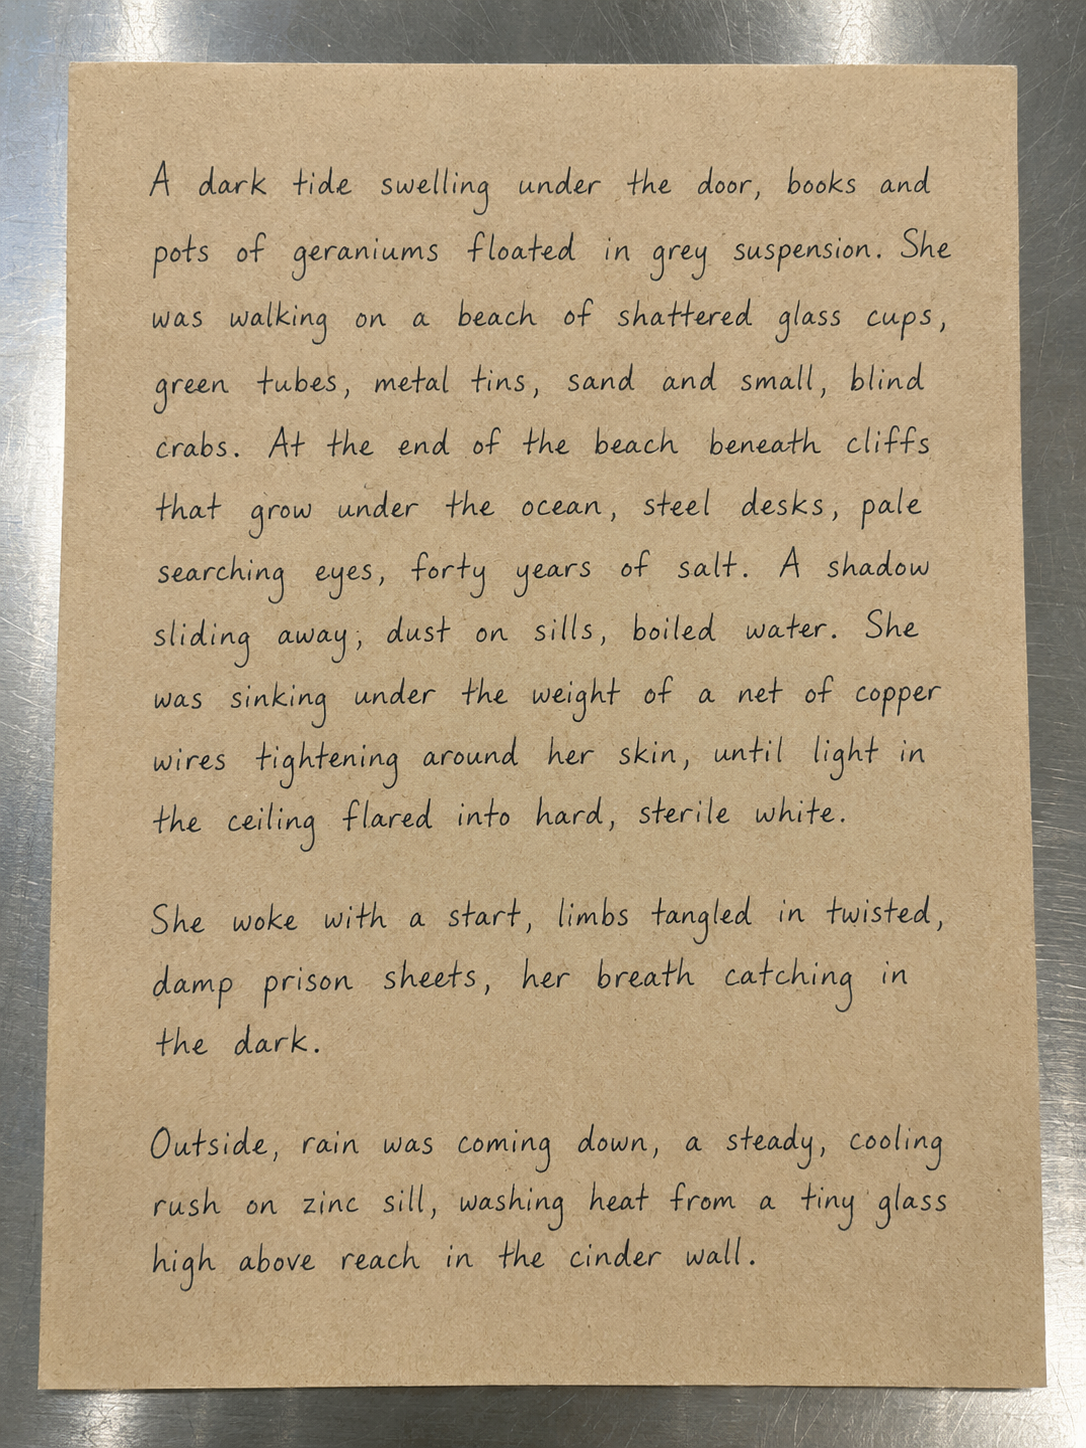 A dark tide swelling under the door, books and
pots of geraniums floated in grey suspension. She
was walking on a beach of shattered glass cups,
green tubes, metal tins, sand and small, blind
crabs. At the end of the beach beneath cliffs
that grow under the ocean, steel desks, pale
searching eyes, forty years of salt. A shadow
sliding away; dust on sills, boiled water. She
was sinking under the weight of a net of copper
wires tightening around her skin, until light in
the ceiling flared into hard, sterile white.

She woke with a start, limbs tangled in twisted,
damp prison sheets, her breath catching in
the dark.

Outside, rain was coming down, a steady, cooling
rush on zinc sill, washing heat from a tiny glass
high above reach in the cinder wall.